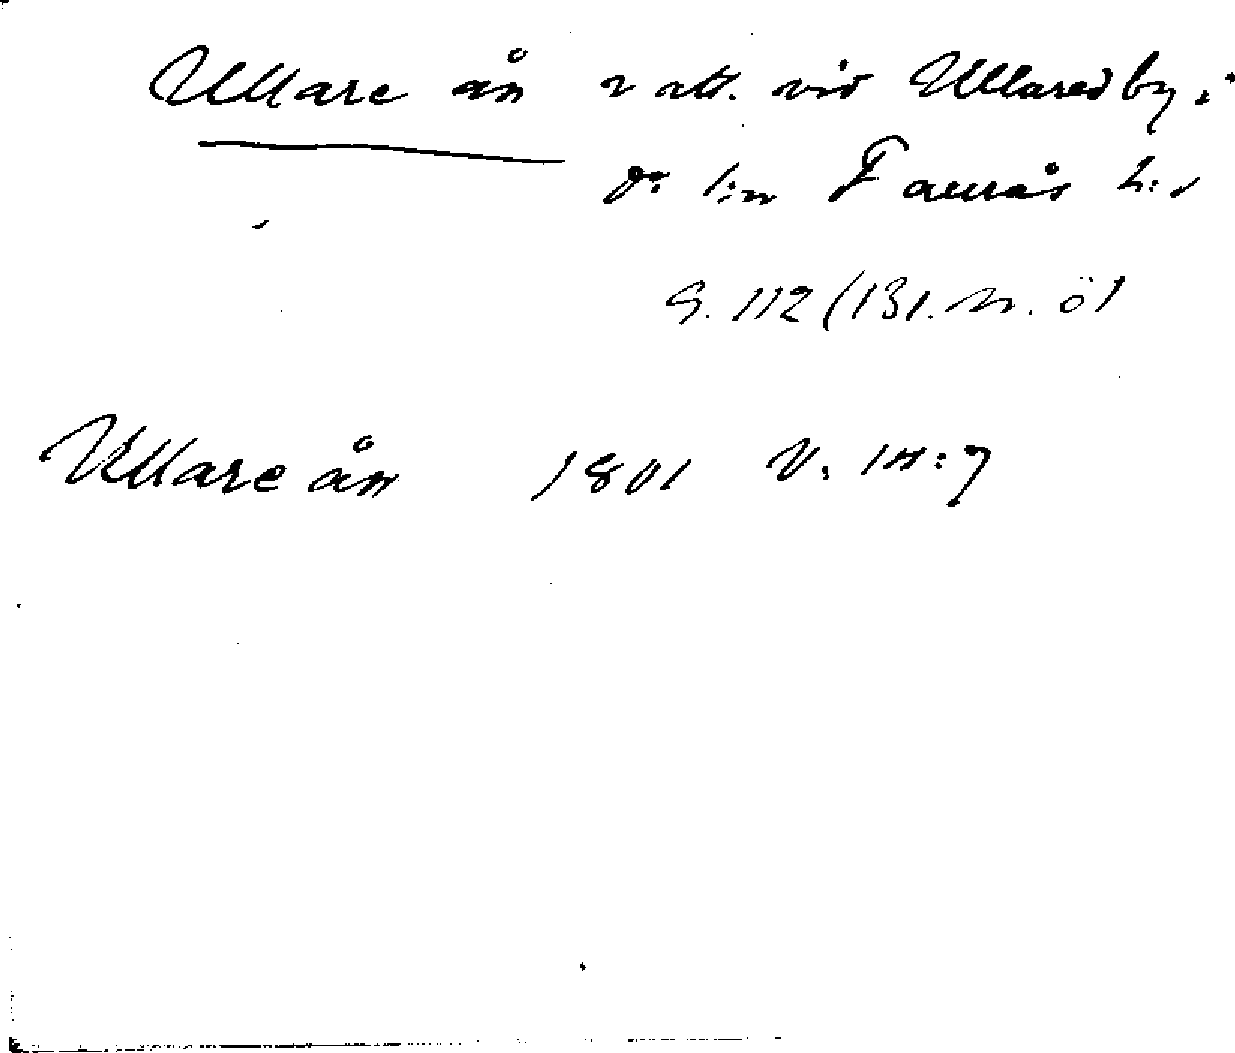 Ullare ån vatt. vid Ullared by i
d:o s:n Faurås h:d
G. 112 (131. n. öl
Ullare ån 1801 V. 14:7